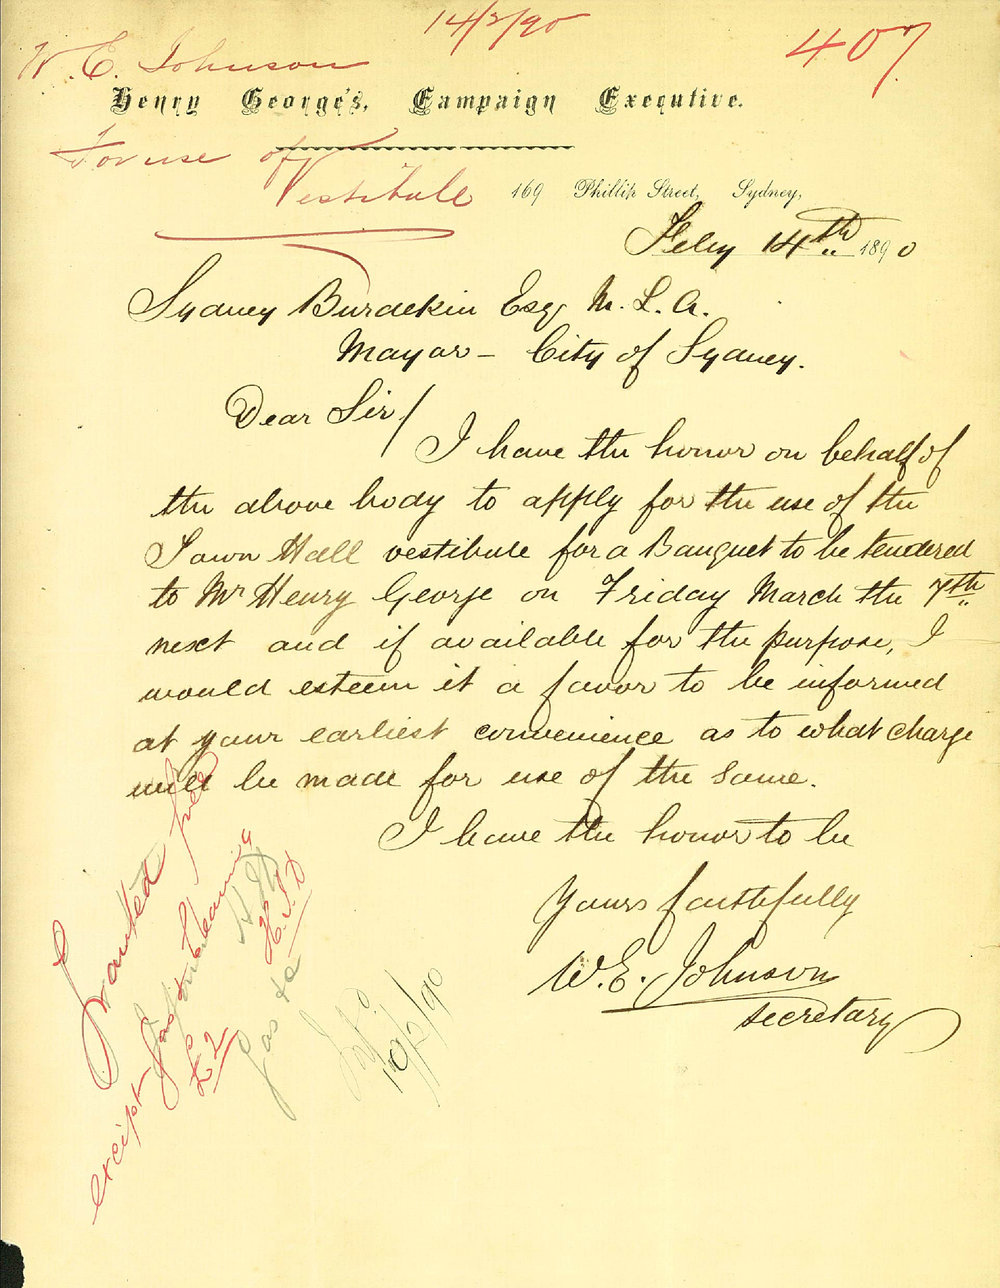 14/2/90
407
W. E. Johnson
Henry George's, Campaign Executive.
For use of
Vestibule
169 Phillip Street, Sydney,
Feby 14th 1890
Sydney Burdekin Esq M. L. A.
Mayor - City of Sydney.
Dear Sir/
I have the honor on behalf of
the above body to apply for the use of the
Town Hall vestibule for a Banquet to be tendered
to Mr Henry George on Friday March the 7th
next and if available for the purpose, I
would esteem it a favor to be informed
at your earliest convenience as to what charge
will be made for use of the same.
I have the honor to be
Yours faithfully
W. E. Johnson
secretary
Granted free
except Gas & Cleaning
£2
H.J.D
Gas
19/2/90